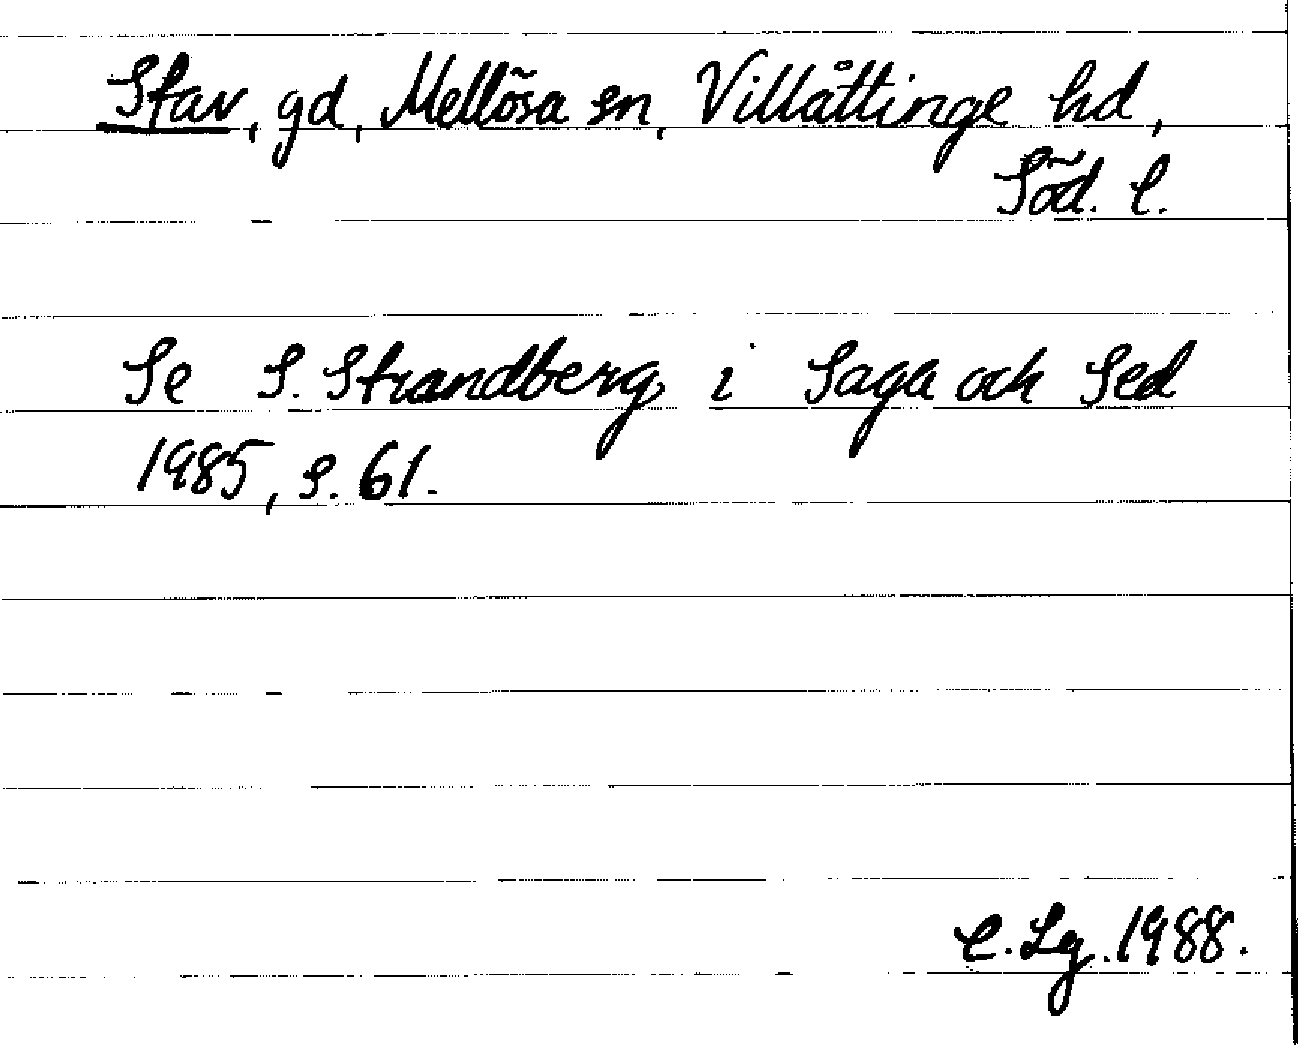 Stav, gd, Mellösa sn, Villåttinge hd,
Söd. l.
Se S. Strandberg i Saga och Sed
1985, s. 61.
C. Lg. 1988.